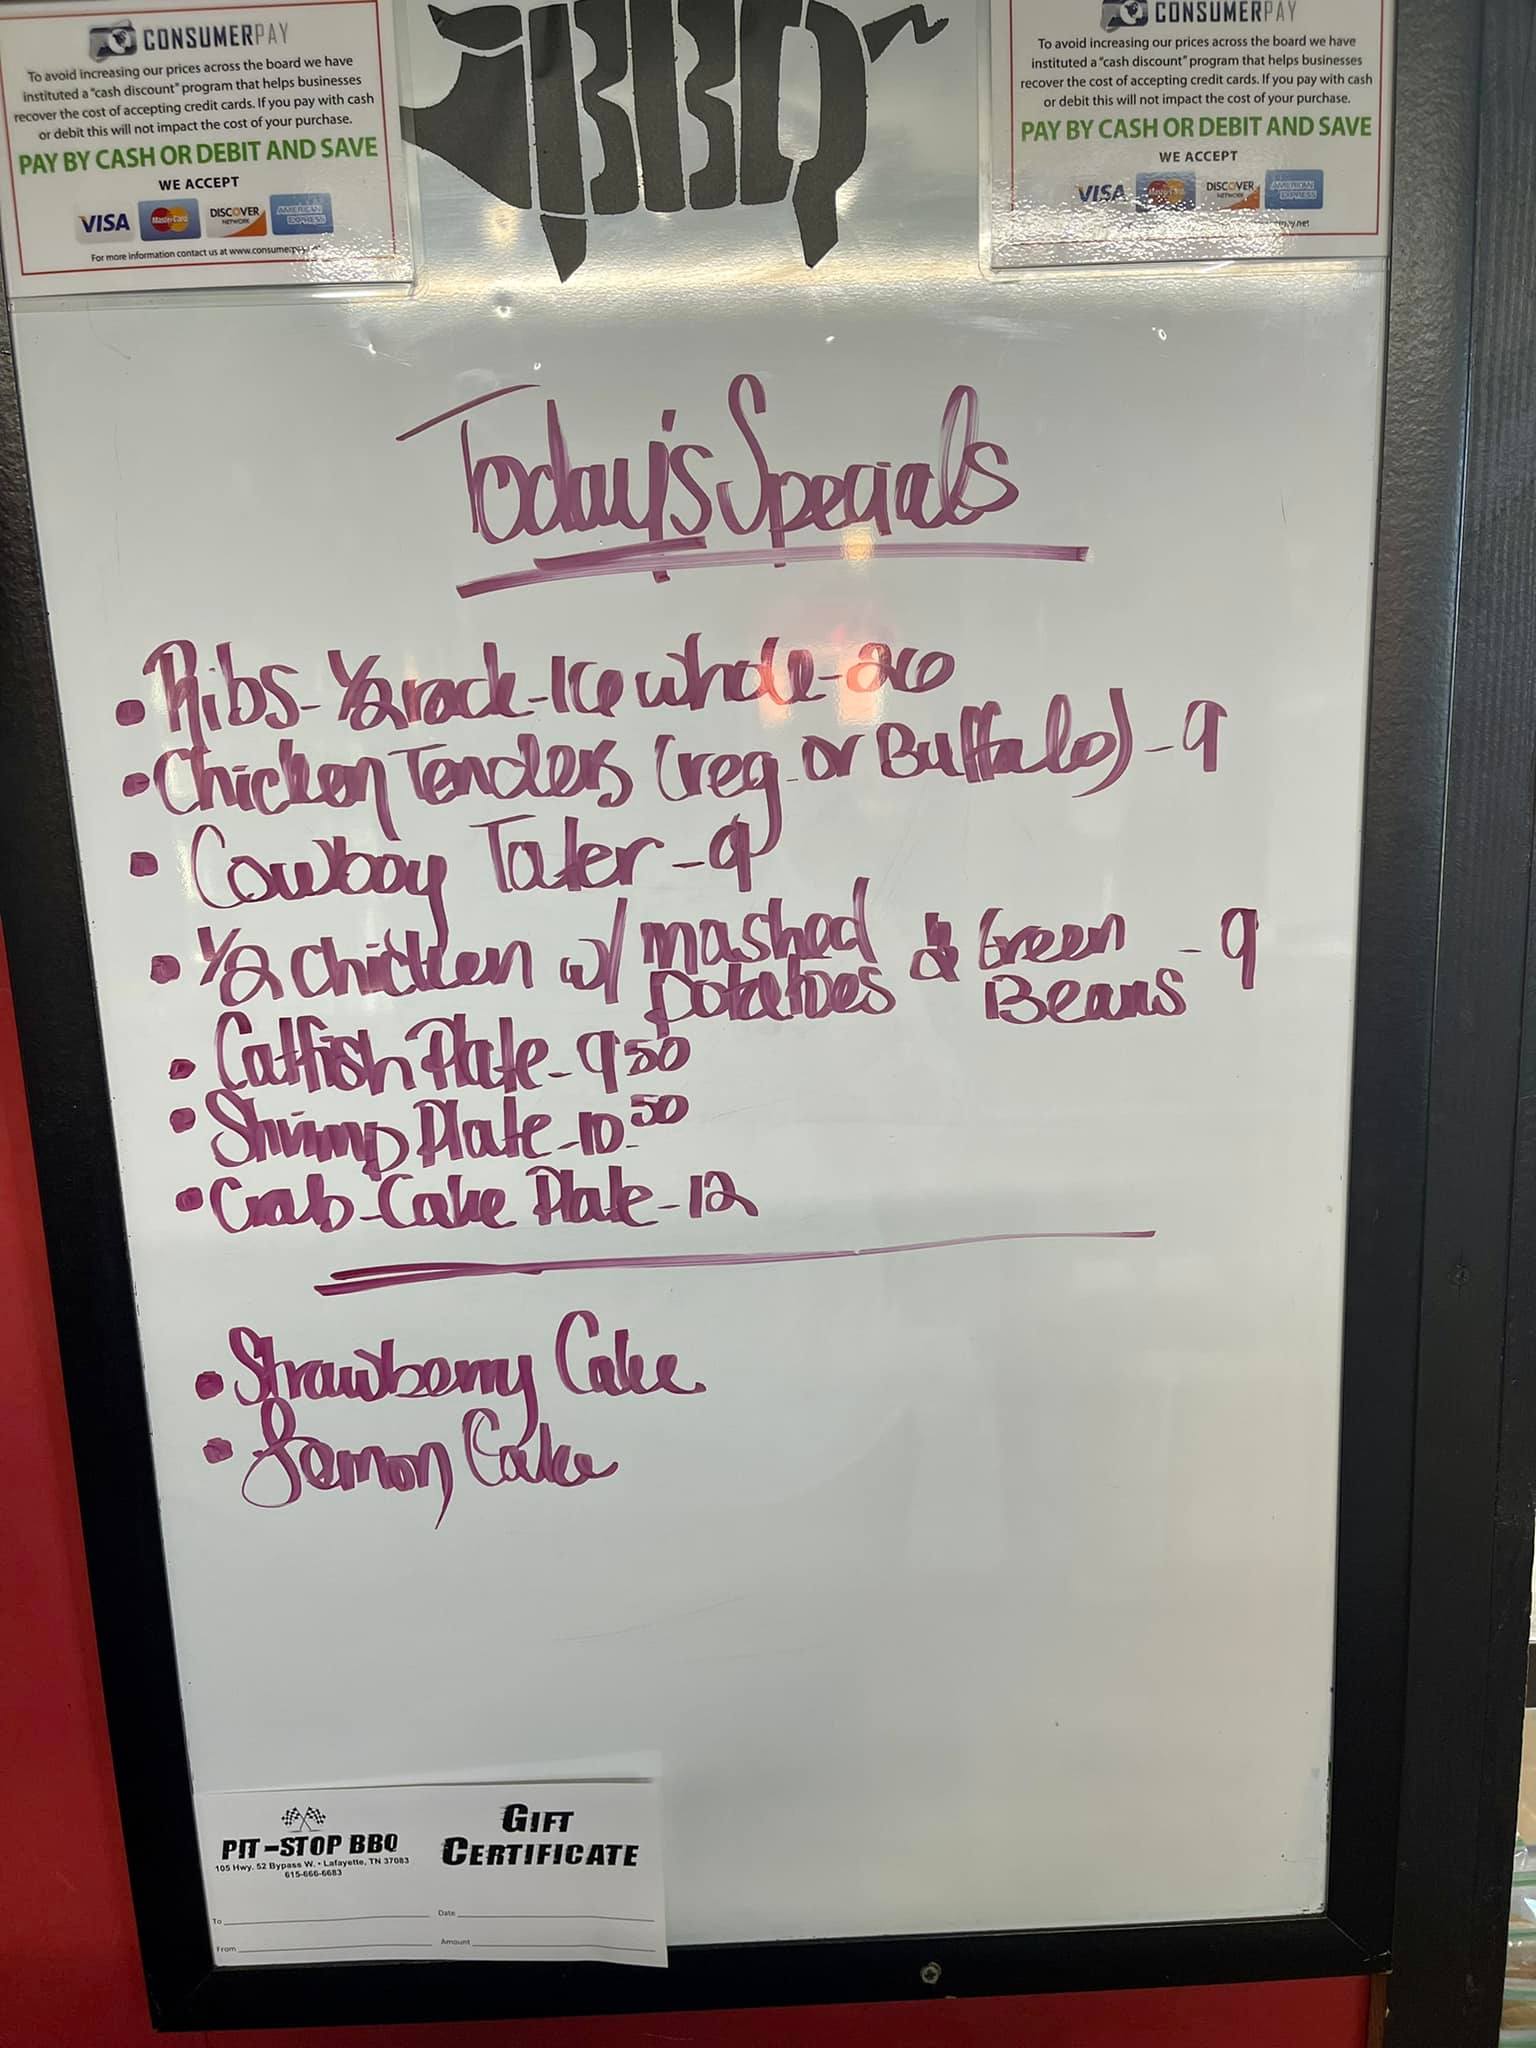 CONSUMERPAY
To avoid increasing our prices across the board we have
instituted a "cash discount" program that helps businesses
recover the cost of accepting credit cards. If you pay with cash
or debit this will not impact the cost of your purchase.
PAY BY CASH OR DEBIT AND SAVE
WE ACCEPT
VISA MasterCard DISCOVER NETWORK AMERICAN EXPRESS
For more information contact us at
BBQ
CONSUMERPAY
To avoid increasing our prices across the board we have
instituted a "cash discount" program that helps businesses
recover the cost of accepting credit cards. If you pay with cash
or debit this will not impact the cost of your purchase.
PAY BY CASH OR DEBIT AND SAVE
WE ACCEPT
VISA MasterCard DISCOVER NETWORK AMERICAN EXPRESS
Today's Specials
• Ribs - 1/2 rack - 16 whole - 26
• Chicken Tenders (reg. or Buffalo) - 9
• Cowboy Tater - 9
• 1/2 Chicken w/ mashed potatoes & Green Beans - 9
• Catfish Plate - 9 50
• Shrimp Plate - 10.50
• Crab-Cake Plate - 12
• Strawberry Cake
• Lemon Cake
PIT-STOP BBQ
105 Hwy. 52 Bypass W. • Lafayette, TN 37083
615-666-6683
GIFT
CERTIFICATE
To Date
From Amount